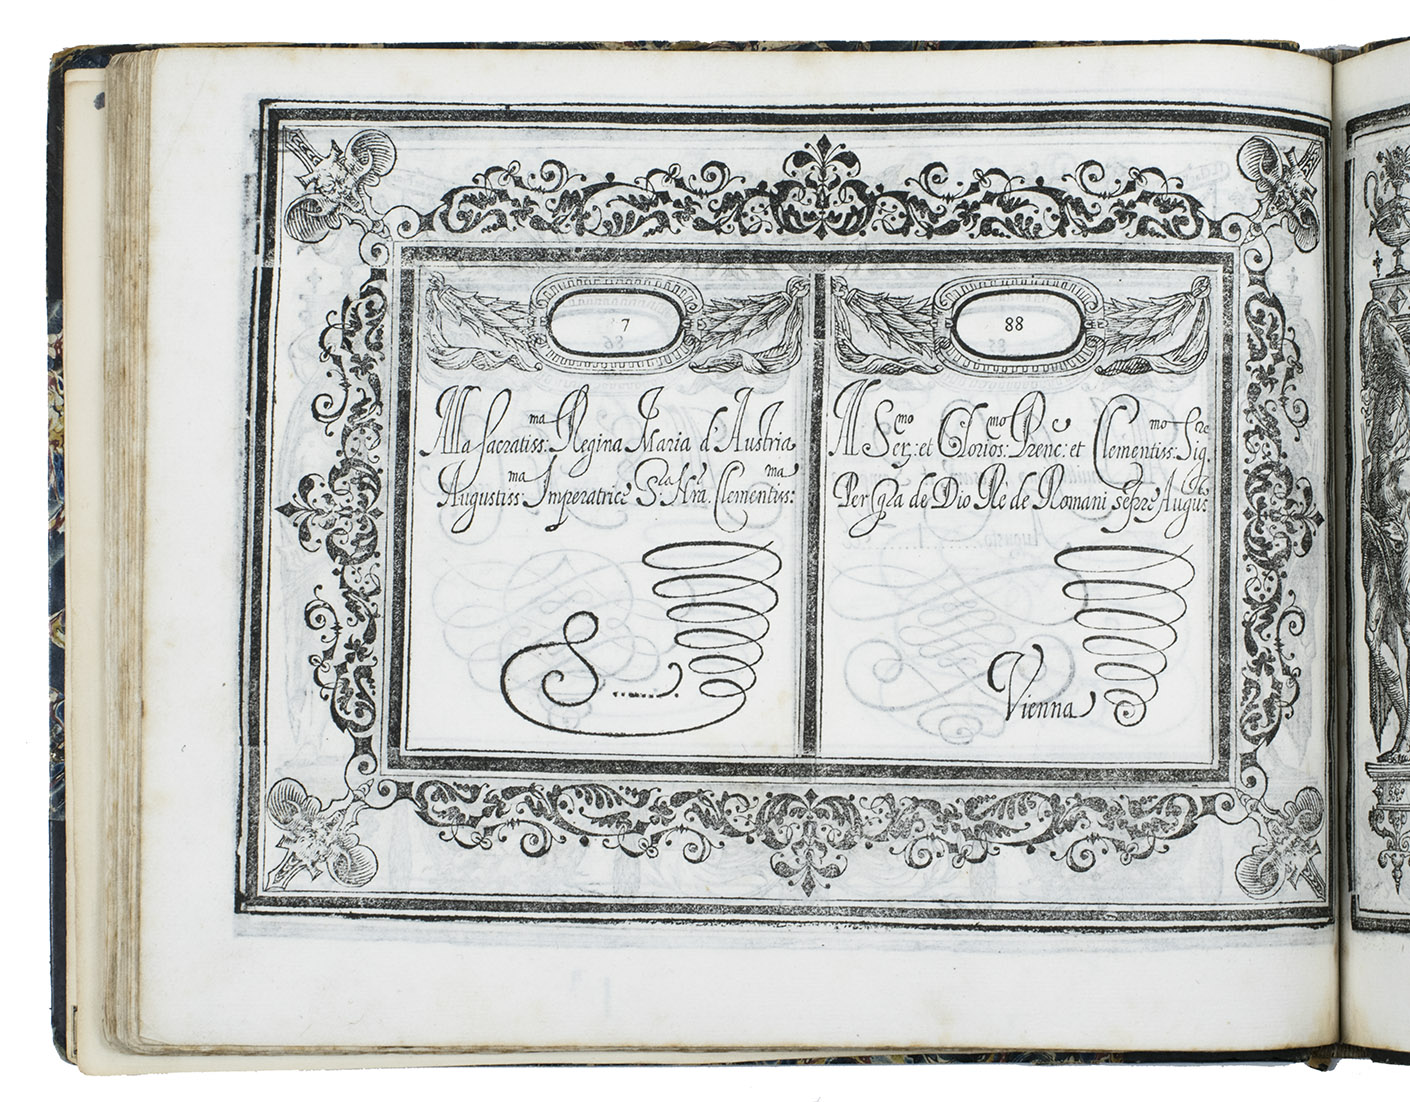 7
Alla Sacratiss:ma Regina Maria d' Austria
Augustiss:ma Imperatrice S.ra Nra. Clementiss:ma
S.......
88
Al Ser:mo et Glorios:mo Prenc:e et Clementiss:mo Sig.re
Per gra de Dio Re de Romani sepre August
Vienna